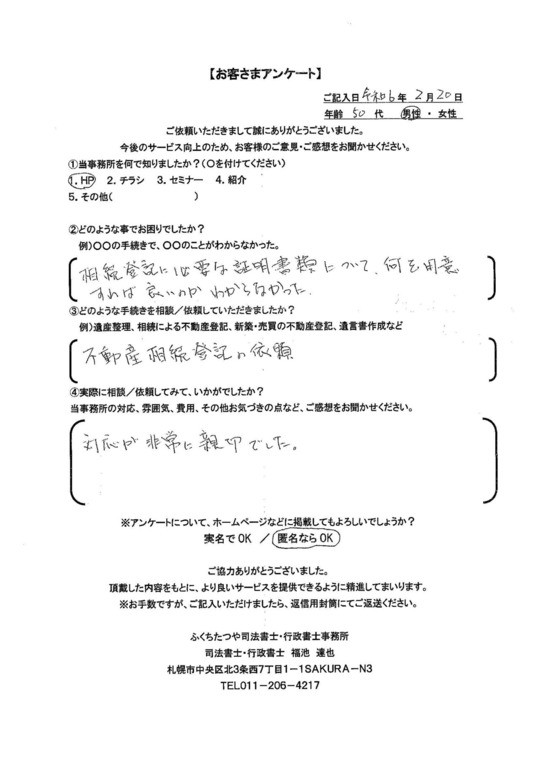 【お客さまアンケート】
ご記入日 令和6年 2月20日
年齢 50 代 男性・女性
ご依頼いただきまして誠にありがとうございました。
今後のサービス向上のため、お客様のご意見・ご感想をお聞かせください。
①当事務所を何で知りましたか?(○を付けてください)
1. HP 2. チラシ 3. セミナー 4. 紹介
5. その他( )
②どのような事でお困りでしたか?
例)○○の手続きで、○○のことがわからなかった。
相続登記に必要な証明書類について、何を用意
すれば良いのかわからなかった.
③どのような手続きを相談/依頼していただきましたか?
例)遺産整理、相続による不動産登記、新築・売買の不動産登記、遺言書作成など
不動産相続登記の依頼
④実際に相談/依頼してみて、いかがでしたか?
当事務所の対応、雰囲気、費用、その他お気づきの点など、ご感想をお聞かせください。
対応が非常に親切でした。
※アンケートについて、ホームページなどに掲載してもよろしいでしょうか?
実名でOK / 匿名ならOK
ご協力ありがとうございました。
頂戴した内容をもとに、より良いサービスを提供できるように精進してまいります。
※お手数ですが、ご記入いただけましたら、返信用封筒にてご返送ください。
ふくちたつや司法書士・行政書士事務所
司法書士・行政書士 福池 達也
札幌市中央区北3条西7丁目1-1SAKURA-N3
TEL011-206-4217